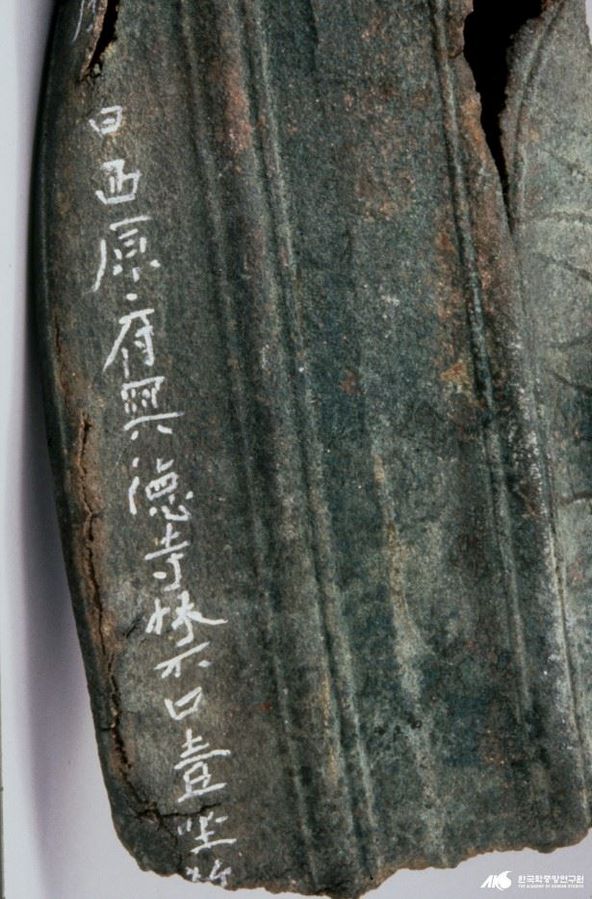 日西原府興德寺禁口壹坐
한국학중앙연구원
THE ACADEMY OF KOREAN STUDIES